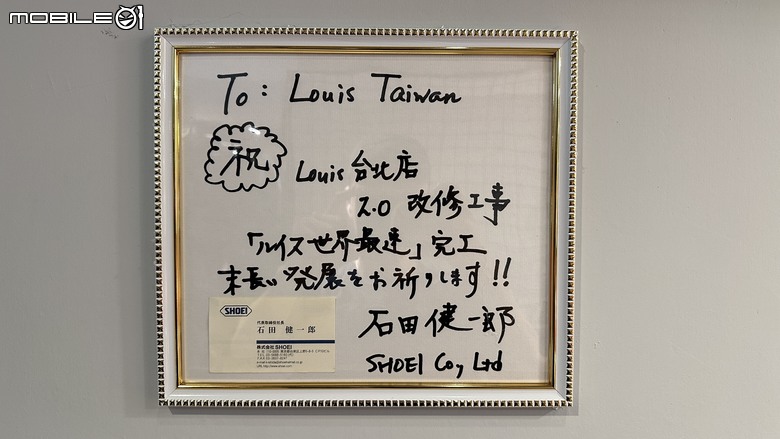 MOBILE01
To: Louis Taiwan
祝
Louis 台北店
2.0 改修工事
「ルイス世界最速」完工
末長い発展をお祈りします!!
石田健一郎
SHOEI Co, Ltd
SHOEI
代表取締役社長
石田 健一郎
株式会社 SHOEI